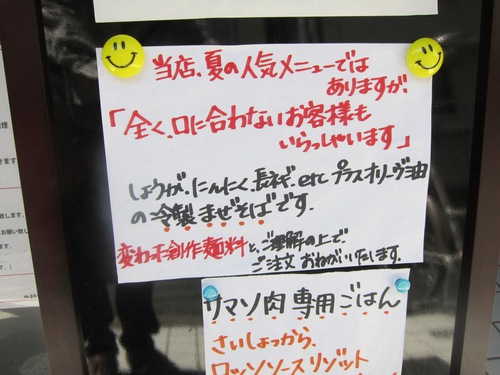 当店、夏の人気メニューでは
ありますが、
「全く、口に合わないお客様も
いらっしゃいます」
しょうが、にんにく、長ネギ、etc プラスオリーヴ油
の冷製まぜそばです。
変わった創作麺料と、ご理解の上で、
ご注文おねがいたします。
リマソ肉専用ごはん
さいしょっから、
ロッソソースリゾット